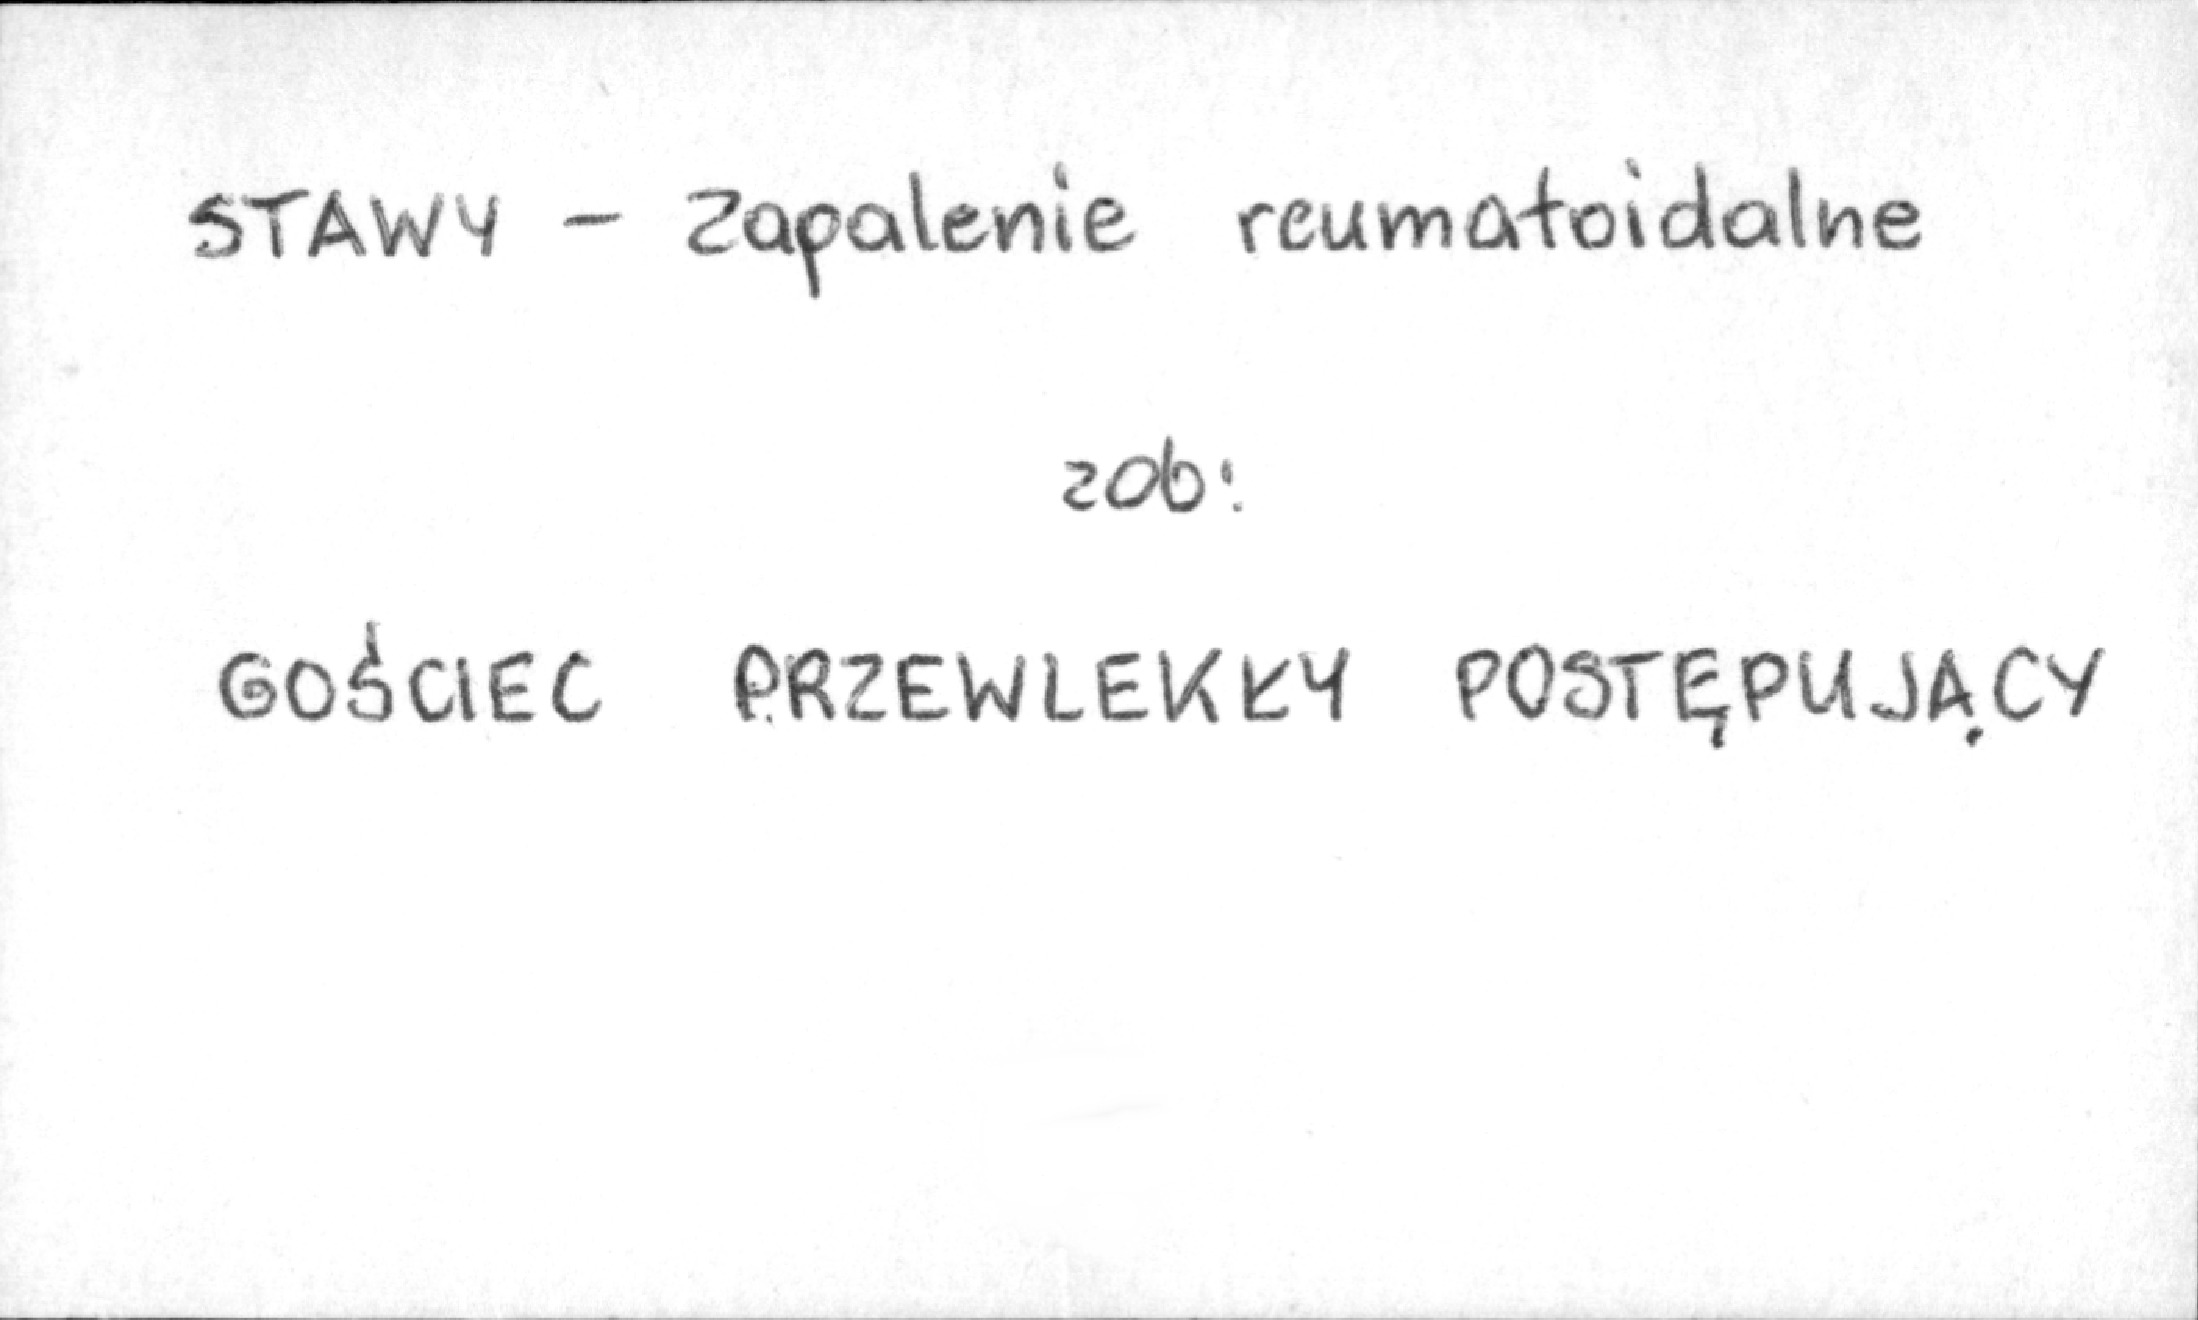 STAWY - Zapalenie reumatoidalne
zob:
GOŚCIEC PRZEWLEKŁY POSTĘPUJĄCY